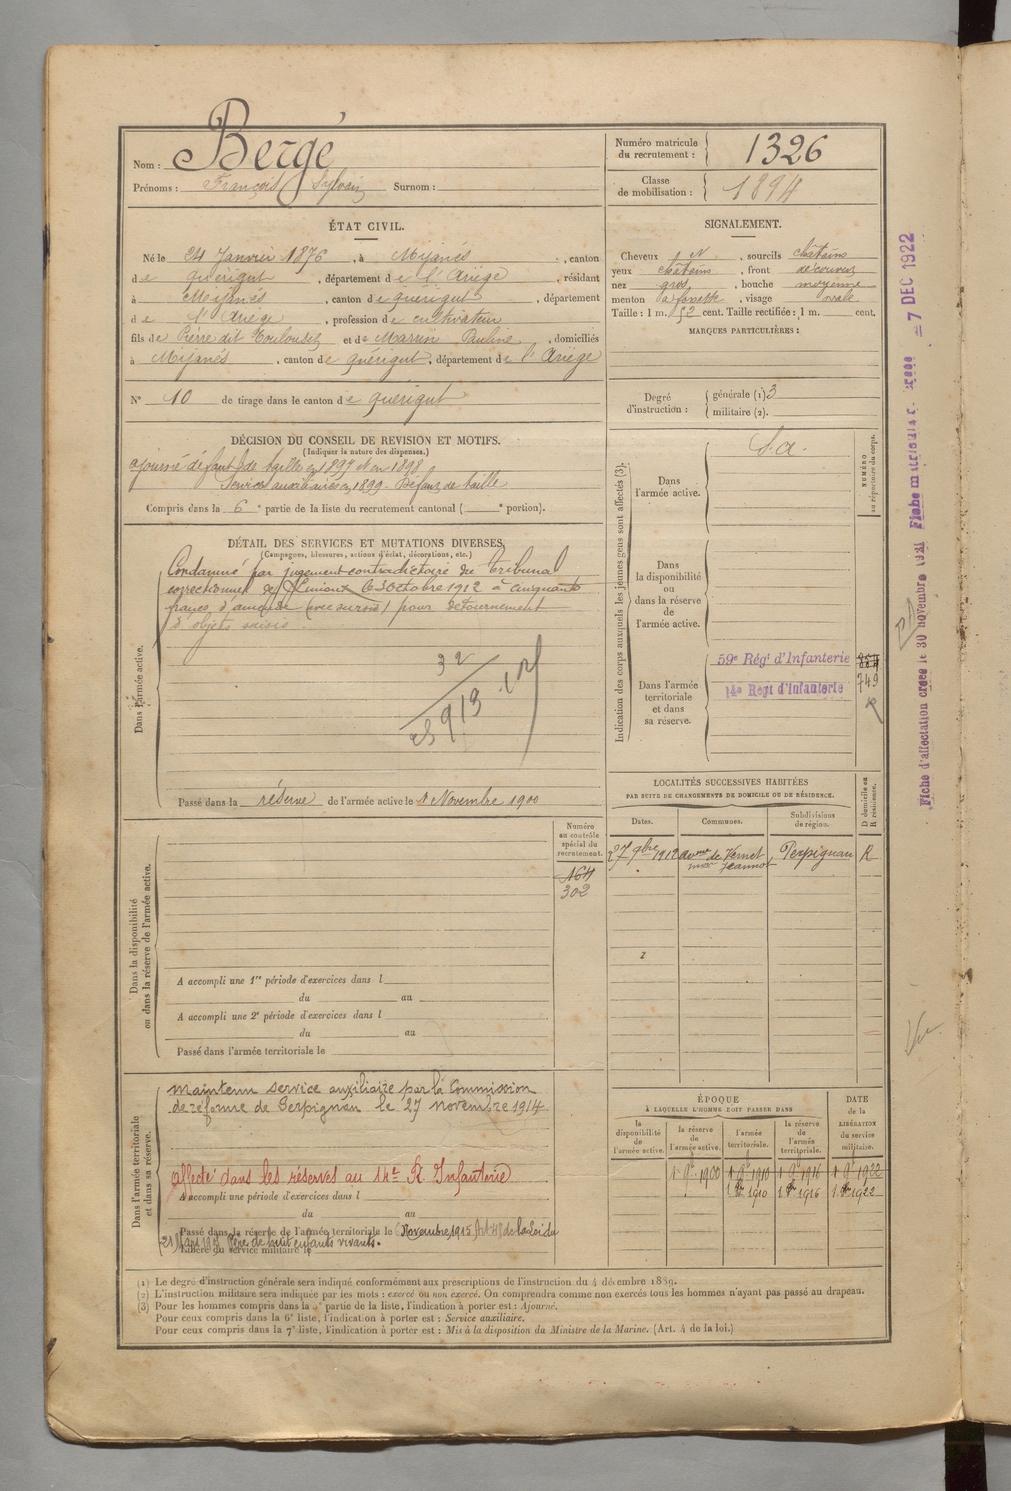 Nom : Bergé
Prénoms : François Sylvain Surnom :
Numéro matricule du recrutement : 1326
Classe de mobilisation : 1894
ÉTAT CIVIL.
Né le 24 Janvier 1876, à Mijanès, canton
de Quérigut, département de l'Ariège, résidant
à Mijanès, canton de Quérigut, département
de l'Ariège, profession de cultivateur
fils de Pierre dit Touloudet et de Marrin Pauline, domiciliés
à Mijanès, canton de Quérigut, département de l'Ariège
N° 10 de tirage dans le canton de Quérigut
SIGNALEMENT.
Cheveux N, sourcils châtains
yeux châtains, front découvert
nez gros, bouche moyenne
menton à fossette, visage ovale
Taille : 1 m. 52 cent. Taille rectifiée : 1 m. cent.
MARQUES PARTICULIÈRES :
Degré d'instruction : générale (1) 3
militaire (2).
DÉCISION DU CONSEIL DE REVISION ET MOTIFS.
(Indiquer la nature des dispenses.)
ajourné défaut de taille en 1897 et en 1898
Service auxiliaire en 1899. Défaut de taille
Compris dans la 6e partie de la liste du recrutement cantonal ( e portion).
DÉTAIL DES SERVICES ET MUTATIONS DIVERSES.
(Campagnes, blessures, actions d'éclat, décorations, etc.)
Dans l'armée active.
Condamné par jugement contradictoire de tribunal
correctionnel de Limoux le 3 Octobre 1912 à cinquante
francs d'amende (avec sursis) pour détournement
d'objets saisis
32
913
Passé dans la réserve de l'armée active le 1 Novembre 1900
Indication des corps auxquels les jeunes gens sont affectés (3).
NUMÉRO au répertoire du corps.
Dans l'armée active.
S.a.
Dans la disponibilité ou dans la réserve de l'armée active.
Dans l'armée territoriale et dans sa réserve.
59e Régt d'Infanterie
14e Regt d'Infanterie 749
LOCALITÉS SUCCESSIVES HABITÉES
PAR SUITE DE CHANGEMENTS DE DOMICILE OU DE RÉSIDENCE.
Dates. Communes. Subdivisions de région. D domicile ou R résidence.
27 9bre 1912 avenue de Vernet Perpignan R
Numéro au contrôle spécial du recrutement.
164
302
Dans la disponibilité ou dans la réserve de l'armée active.
A accompli une 1re période d'exercices dans l
du au
A accompli une 2e période d'exercices dans l
du au
Passé dans l'armée territoriale le
Dans l'armée territoriale et dans sa réserve.
maintenu service auxiliaire par la Commission
de réforme de Perpignan le 27 novembre 1914
affecté dans les réserves au 14e R. Infanterie
A accompli une période d'exercices dans l
du au
Passé dans la réserve de l'armée territoriale le Novembre 1915 Art 48 de la Loi du
21 Mars 1905 Père de huit enfants vivants.
Libéré du service militaire le
ÉPOQUE
À LAQUELLE L'HOMME DOIT PASSER DANS
la disponibilité de l'armée active. la réserve de l'armée active. l'armée territoriale. la réserve de l'armée territoriale. DATE de la LIBÉRATION du service militaire.
1 9bre 1900 1 9bre 1910 1 9bre 1916 1 9bre 1922
1910 1916 1922
(1) Le degré d'instruction générale sera indiqué conformément aux prescriptions de l'instruction du 4 décembre 1889.
(2) L'instruction militaire sera indiquée par les mots : exercé ou non exercé. On comprendra comme non exercés tous les hommes n'ayant pas passé au drapeau.
(3) Pour les hommes compris dans la 5e partie de la liste, l'indication à porter est : Ajourné.
Pour ceux compris dans la 6e liste, l'indication à porter est : Service auxiliaire.
Pour ceux compris dans la 7e liste, l'indication à porter est : Mis à la disposition du Ministre de la Marine. (Art. 4 de la loi.)
Fiche d'affectation créée le 30 novembre 1921 Fiche matricule
7 DEC 1922